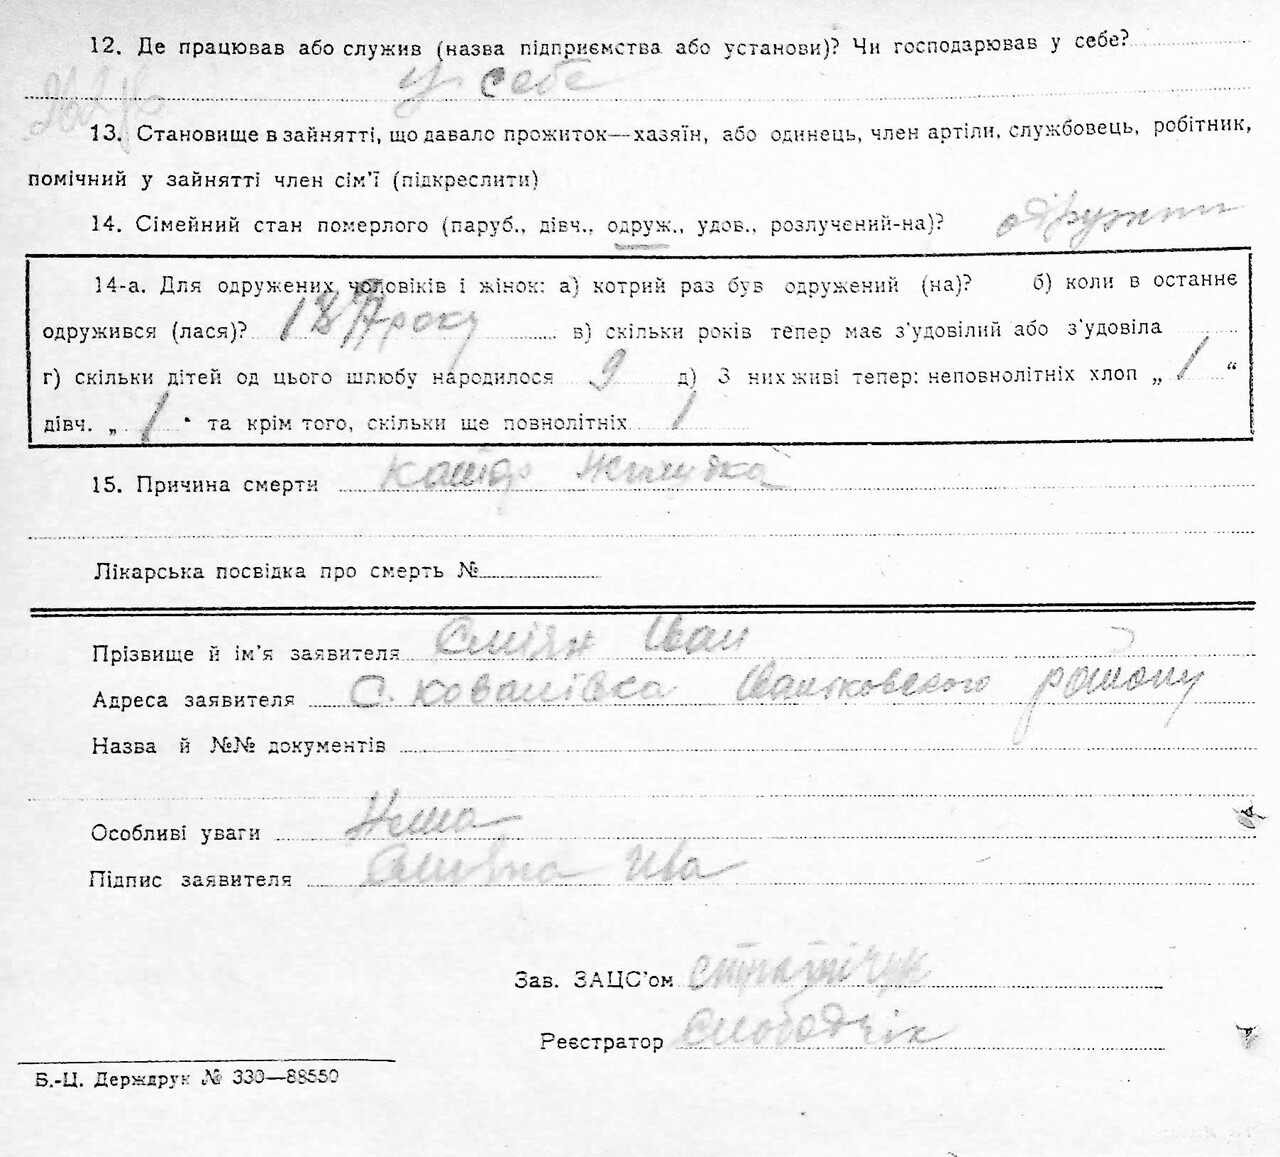 12. Де працював або служив (назва підприємства або установи)? Чи господарював у себе?
у себе
13. Становище в зайнятті, що давало прожиток—хазяїн, або одинець, член артіли, службовець, робітник,
помічний у зайнятті член сім'ї (підкреслити)
14. Сімейний стан померлого (паруб., дівч., одруж., удов., розлучений-на)?
14-а. Для одружених чоловіків і жінок: а) котрий раз був одружений (на)? б) коли в останнє
одружився (лася)? року в) скільки років тепер має з'удовілий або з'удовіла
г) скільки дітей од цього шлюбу народилося 9 д) З них живі тепер: неповнолітніх хлоп „ 1 “
дівч. „ 1 " та крім того, скільки ще повнолітніх 1
15. Причина смерти Катар
Лікарська посвідка про смерть №
Прізвище й ім'я заявителя Іван
Адреса заявителя С. Ковалівка району
Назва й №№ документів
Особливі уваги Нема
Підпис заявителя
Зав. ЗАЦС'ом
Реєстратор
Б.-Ц. Держдрук № 330—88550